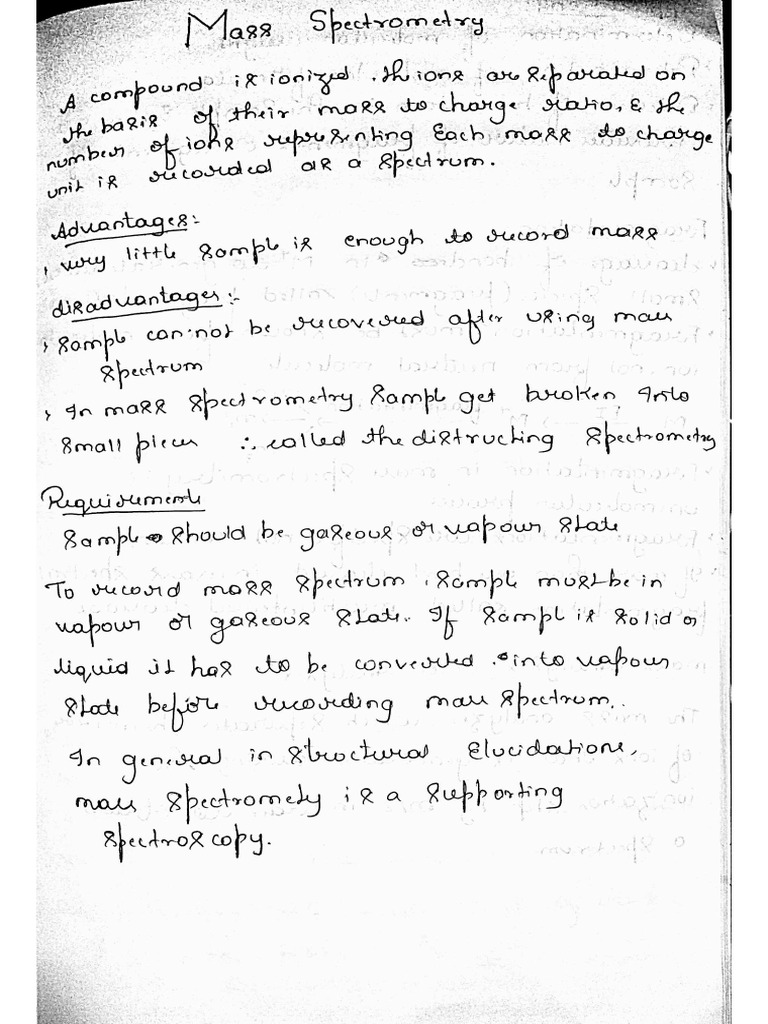 Mass Spectrometry
A compound is ionized, the ions are separated on
the basis of their mass to charge ratio, & the
number of ions representing Each mass to charge
unit is recorded as a spectrum.
Advantages:-
, very little sample is enough to record mass
disadvantages:-
, sample can·not be recovered after using mass
spectrum
, In mass spectrometry sample get broken Into
small pieces ∴ called the distructing spectrometry
Requirements
sample should be gaseous or vapour state
To record mass spectrum, sample must be in
vapour or gaseous state. If sample is solid or
liquid it has to be converted into vapour
state before recording mass spectrum.
In general in structural Elucidations,
mass spectromety is a supporting
spectroscopy.